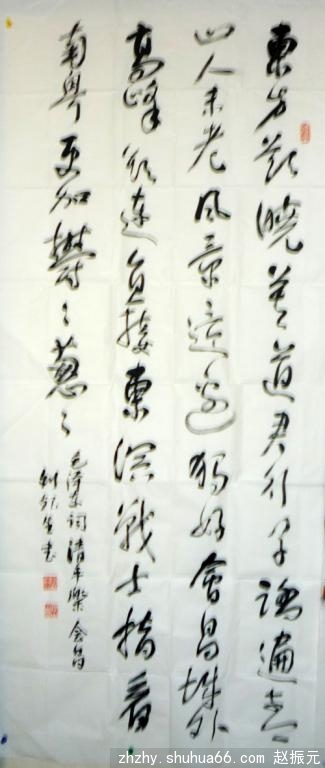 東方欲曉莫道君行早踏遍青
山人未老風景這邊獨好會昌城外
高峰顛連直接東溟戰士指看
南粤更加鬱々葱々
毛泽东词清平樂会昌
zhzhy.shuhua66.com 赵振元